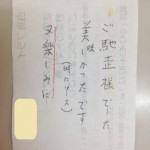 ご馳走様でした
美味しかったです
(特にナス)
又楽しみに